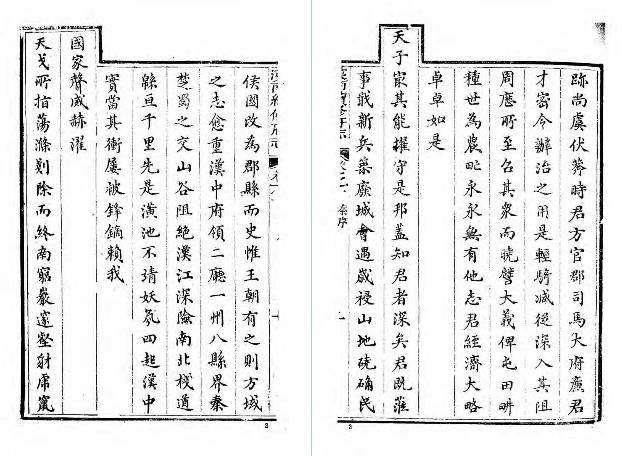 侯國改為郡縣而史惟王朝有之則方域
之志愈重漢中府領二廳一州八縣界秦
楚蜀之交山谷阻絕漢江深險南北棧道
緜亘千里先是潢池不靖妖氛四起漢中
實當其衝屢被鋒鏑賴我
國家聲威赫濯
天戈所指蕩滌剗除而終南窮巖邃壑射虎竄
2
跡尚虞伏莽時君方官郡司馬大府廉君
才密令辦治之用是輕騎減從深入其阻
周歷所至召其衆而曉譬大義俾屯田畊
種世為農甿永永無有他志君經濟大略
卓卓如是
天子㝡其能擢守是邦蓋知君者深矣君既蒞
事戢新兵築廢城會遇歲祲山地磽确民
3